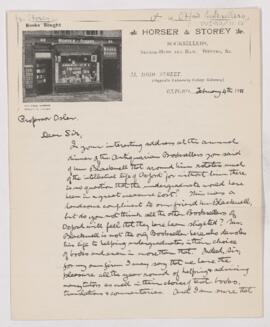 Books Bought
HORSER & STOREY
BOOKSELLERS,
SECOND-HAND AND RARE. PRINTS, &c.
HIGH STREET
(Opposite University College Gateway)
OXFORD, February 4th 19
Professor Osler
Dear Sir,
In your interesting address at the annual
dinner of the Antiquarian Booksellers you said
of Mr Blackwell that around him rotated much
of the intellectual life of Oxford for without him there
is no question that the undergraduate would have
been in a great measure lost". This was a
handsome compliment to our friend Mr Blackwell,
but do you not think all the other Booksellers of
Oxford will feel that they have been slighted? Mr
Blackwell is not the only Bookseller here who devotes
his life to helping undergraduates in their choice
of books and even in more than that. Indeed, Sir,
for my own firm I may say that we have the
pleasure all the year round of helping & advising
many tutors as well in their choice of text books,
translations & commentaries. And I am sure that